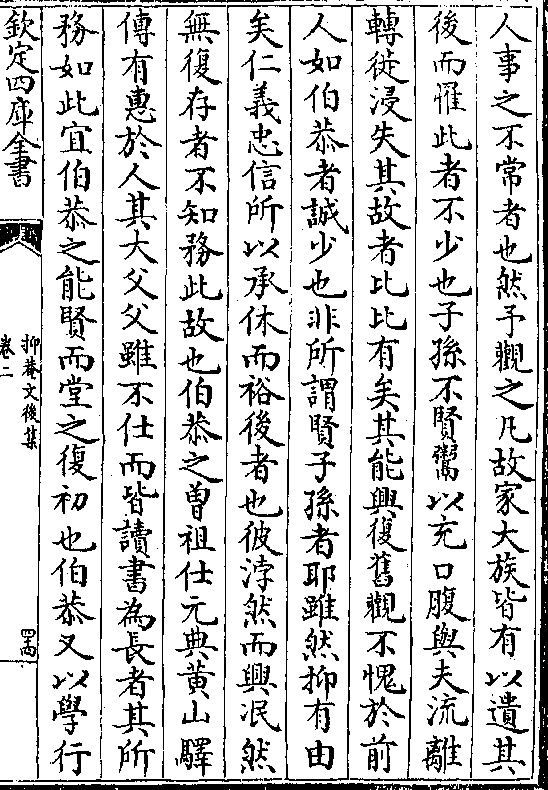 人事之不常者也然予觀之凡故家大族皆有以遺其
後而罹此者不少也子孫不賢鬻以充口腹與夫流離
轉徙浸失其故者比比有矣其能興復舊觀不愧於前
人如伯恭者誠少也非所謂賢子孫者耶雖然抑有由
矣仁義忠信所以承休而裕後者也彼浡然而興泯然
無復存者不知務此故也伯恭之曾祖仕元典黄山驛
傳有惠於人其大父父雖不仕而皆讀書為長者其所
務如此宜伯恭之能賢而堂之復初也伯恭又以學行
欽定四庫全書
抑菴文後集
卷二